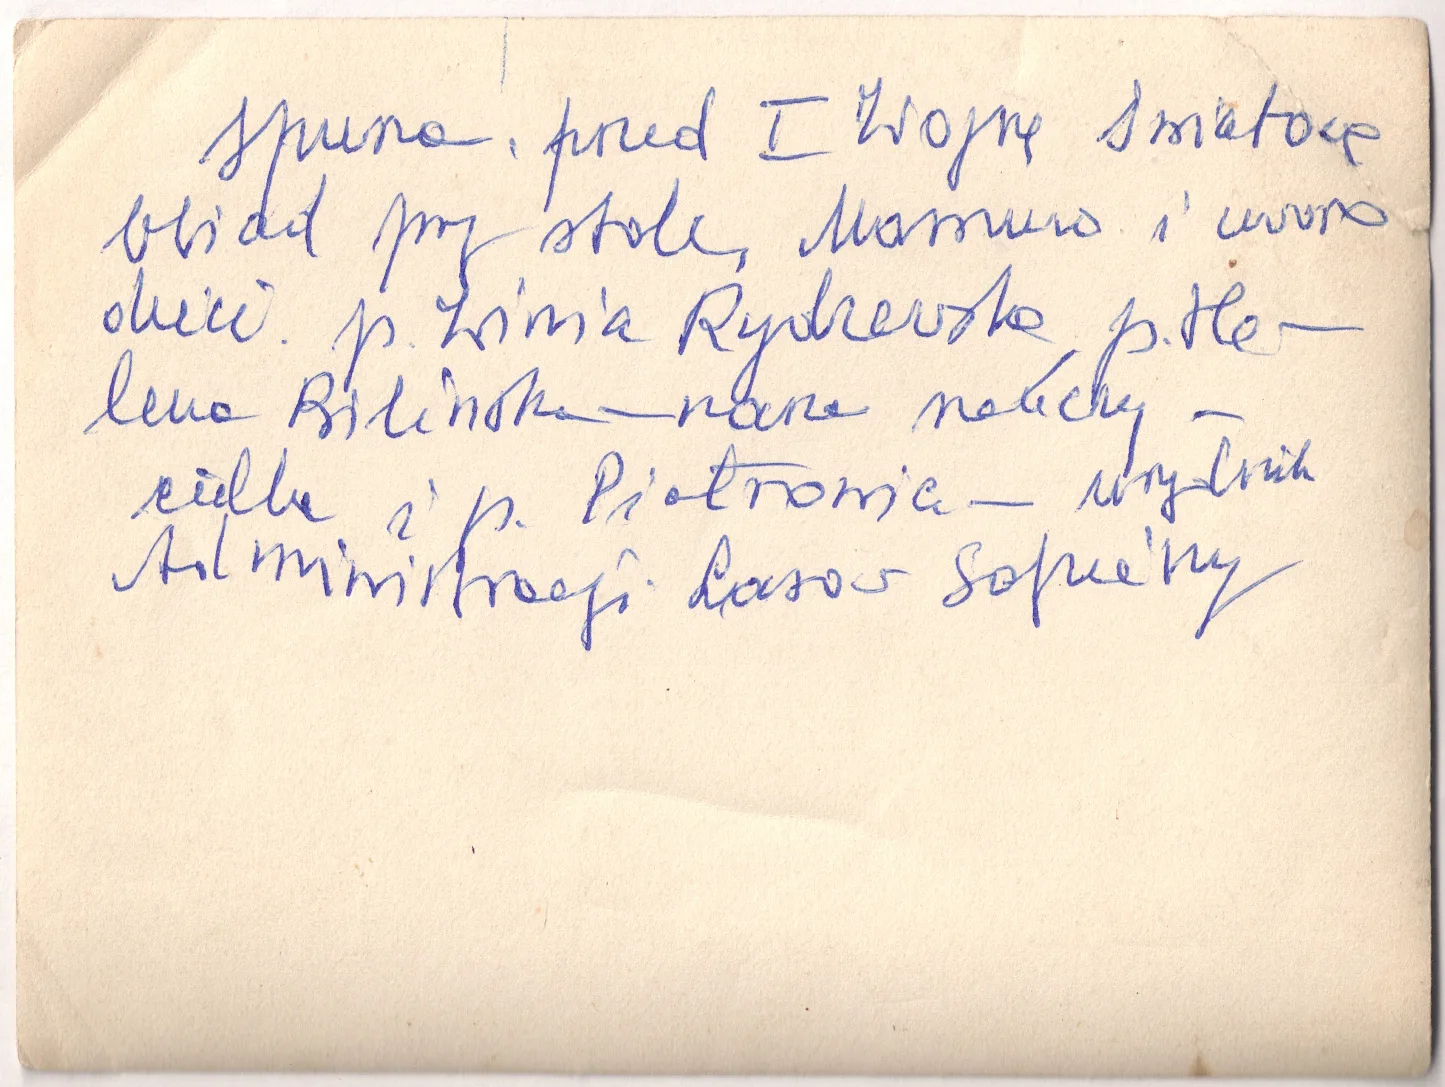 Spusza. przed I Wojnę Światową
obiad przy stole, Mamusia i czworo
dzieci. p. Zinia Rydzewska, p. He-
lena Bilińska—nasza nauczy-
cielka i p. Piotrowicz— urzędnik
Administracji Lasów Sapieżny